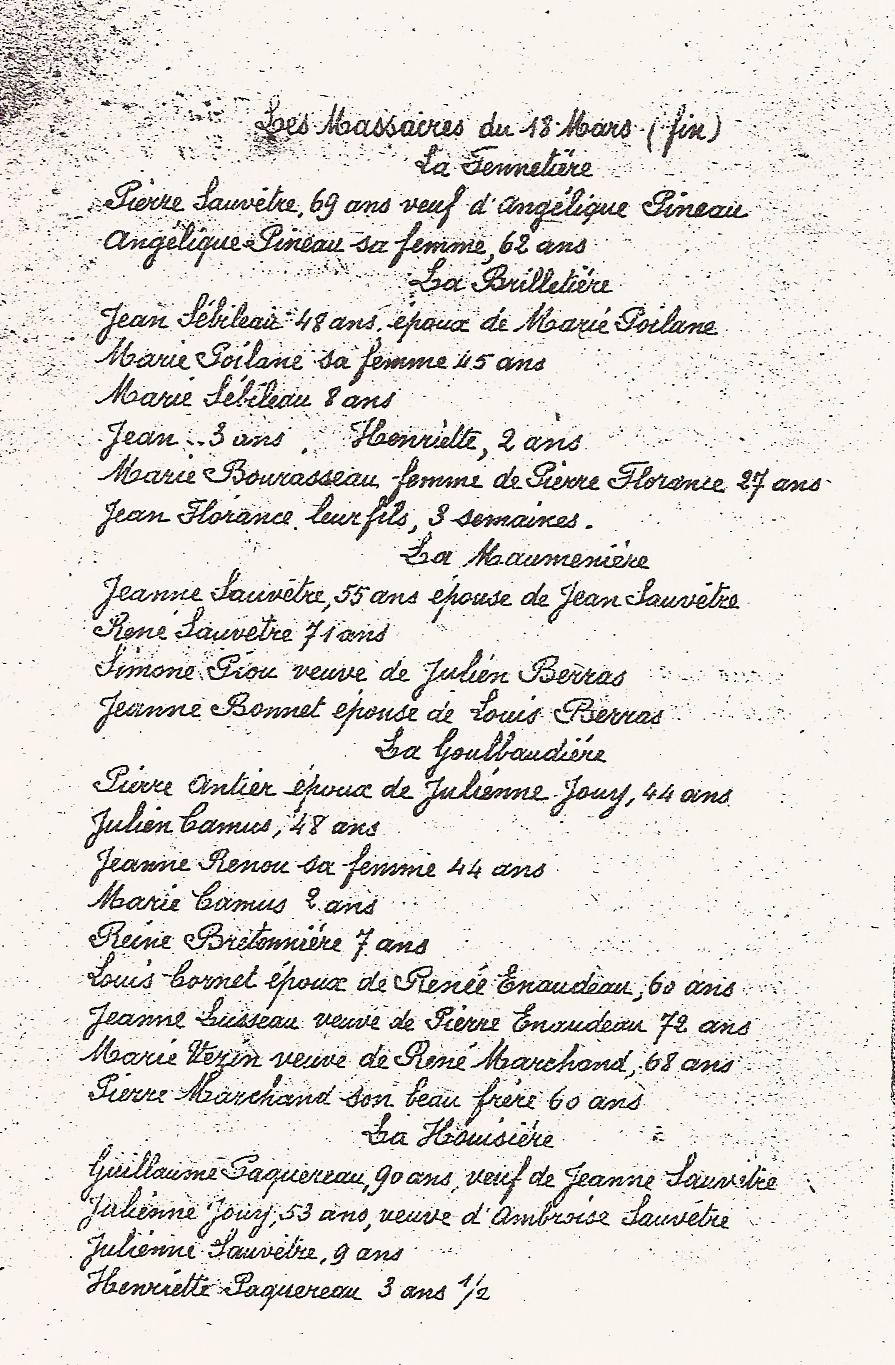 Les Massacres du 18 Mars (fin)
La Fennetière
Pierre Sauvêtre, 69 ans veuf d'Angélique Pineau
Angélique Pineau sa femme, 62 ans
La Brilletière
Jean Sébileau 48 ans, époux de Marie Poilane
Marie Poilane sa femme 45 ans
Marie Sébileau 8 ans
Jean .. 3 ans , Henriette, 2 ans
Marie Bourasseau femme de Pierre Florance 27 ans
Jean Florance leur fils, 3 semaines.
La Maumenière
Jeanne Sauvêtre, 55 ans épouse de Jean Sauvêtre
René Sauvêtre 71 ans
Simone Piou veuve de Julien Berras
Jeanne Bonnet épouse de Louis Berras
La Goulbaudière
Pierre Antier époux de Julienne Jouy, 44 ans
Julien Camus, 48 ans
Jeanne Renou sa femme 44 ans
Marie Camus 2 ans
Reine Bretonnière 7 ans
Louis Cornet époux de Renée Enaudeau, 60 ans
Jeanne Lusseau veuve de Pierre Enaudeau 72 ans
Marie Vezin veuve de René Marchand, 68 ans
Pierre Marchand son beau frère 60 ans
La Houisière
Guillaume Paquereau, 90 ans, veuf de Jeanne Sauvêtre
Julienne Jouy, 53 ans, veuve d'Ambroise Sauvêtre
Julienne Sauvêtre, 9 ans
Henriette Paquereau 3 ans 1/2